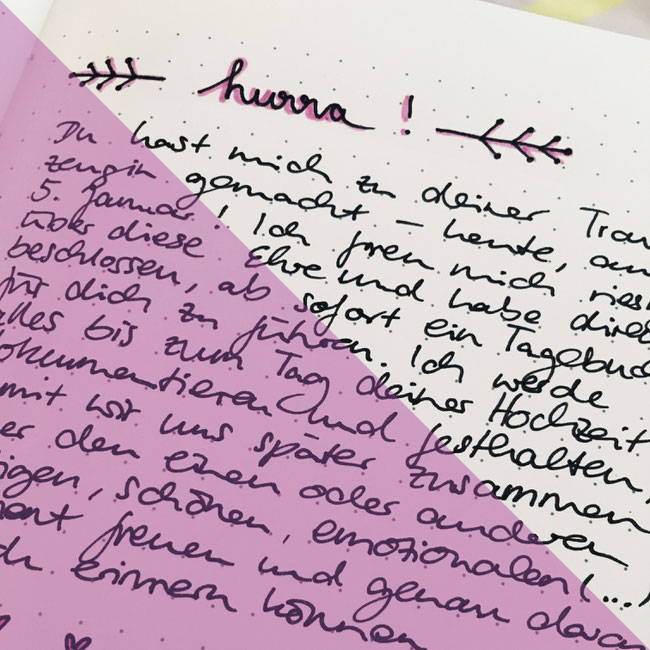 hurra!
Du hast mich zu deiner Trau
zeugin gemacht – heute, am
5. Januar! Ich freu mich ries
über diese Ehre und habe dire
beschlossen, ab sofort ein Tagebuc
für dich zu führen. Ich werde
alles bis zum Tag deiner Hochzeit
okumentieren und festhalten,
mit wir uns später zusammen
er den einen oder anderen
igen, schönen, emotionalen (...)
ent freuen und genau daran
ch erinnern können